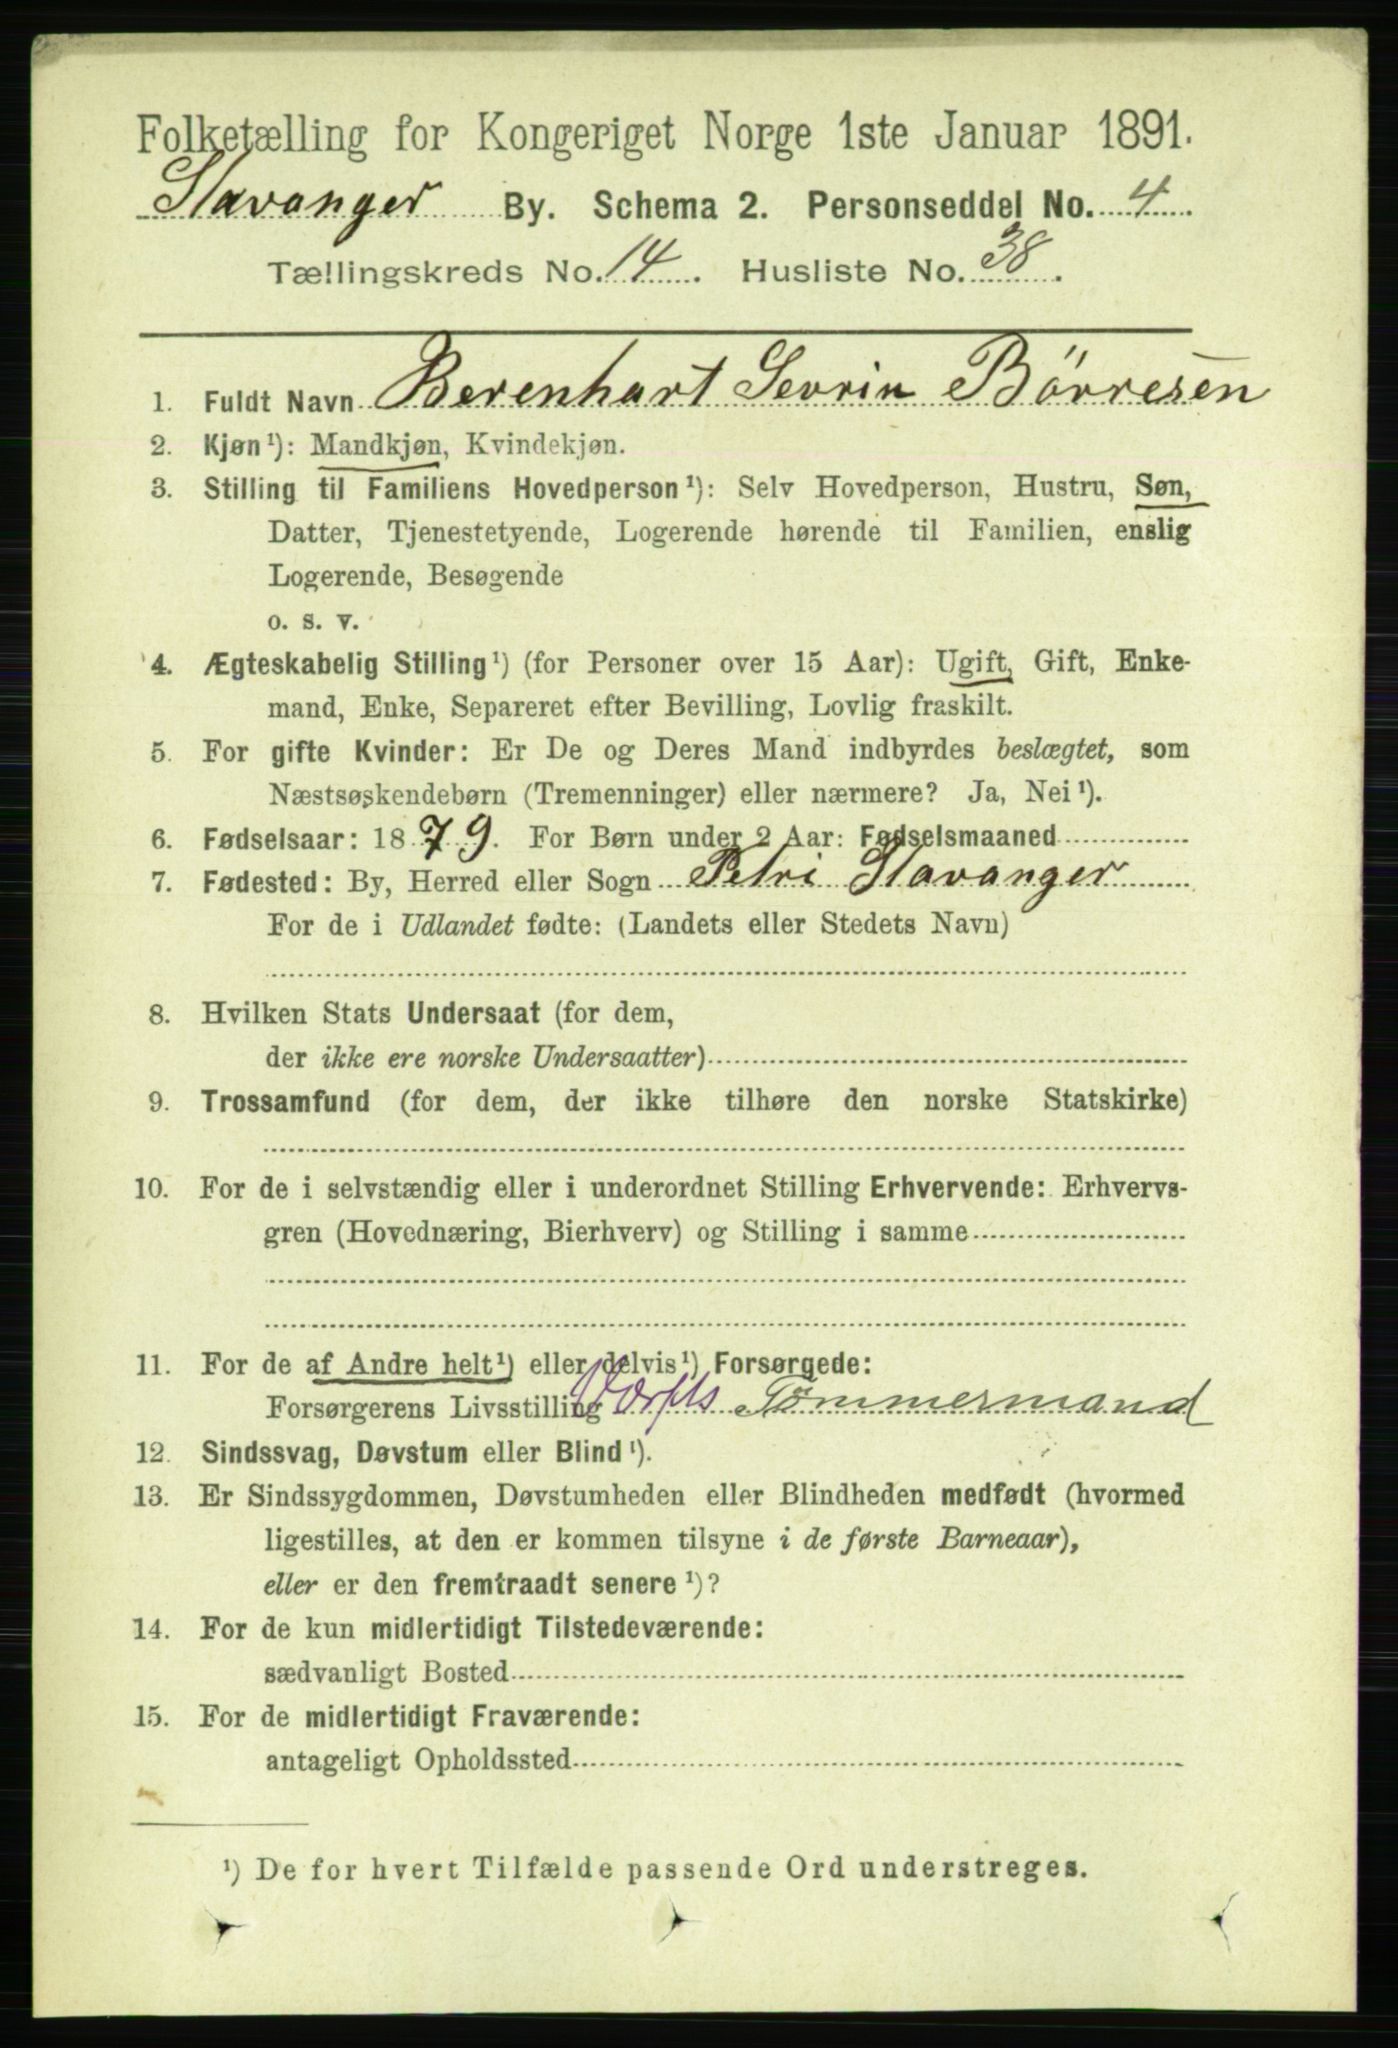 Folketælling for Kongeriget Norge 1ste Januar 1891.
Stavanger By. Schema 2. Personseddel No. 4
Tællingskreds No. 14. Husliste No. 38.
1. Fuldt Navn Berenhart Sevrin Börresen
2. Kjøn¹): Mandkjøn, Kvindekjøn.
3. Stilling til Familiens Hovedperson¹): Selv Hovedperson, Hustru, Søn,
Datter, Tjenestetyende, Logerende hørende til Familien, enslig
Logerende, Besøgende
o. s. v.
4. Ægteskabelig Stilling¹) (for Personer over 15 Aar): Ugift, Gift, Enke-
mand, Enke, Separeret efter Bevilling, Lovlig fraskilt.
5. For gifte Kvinder: Er De og Deres Mand indbyrdes beslægtet, som
Næstsøskendebørn (Tremenninger) eller nærmere? Ja, Nei¹).
6. Fødselsaar: 1879. For Børn under 2 Aar: Fødselsmaaned
7. Fødested: By, Herred eller Sogn Petri Stavanger
For de i Udlandet fødte: (Landets eller Stedets Navn)
8. Hvilken Stats Undersaat (for dem,
der ikke ere norske Undersaatter)
9. Trossamfund (for dem, der ikke tilhøre den norske Statskirke)
10. For de i selvstændig eller i underordnet Stilling Erhvervende: Erhvervs-
gren (Hovednæring, Bierhverv) og Stilling i samme
11. For de af Andre helt¹) eller delvis¹) Forsørgede:
Forsørgerens Livsstilling Værfts Tømmermand
12. Sindssvag, Døvstum eller Blind¹).
13. Er Sindssygdommen, Døvstumheden eller Blindheden medfødt (hvormed
ligestilles, at den er kommen tilsyne i de første Barneaar),
eller er den fremtraadt senere¹)?
14. For de kun midlertidigt Tilstedeværende:
sædvanligt Bosted
15. For de midlertidigt Fraværende:
antageligt Opholdssted
¹) De for hvert Tilfælde passende Ord understreges.